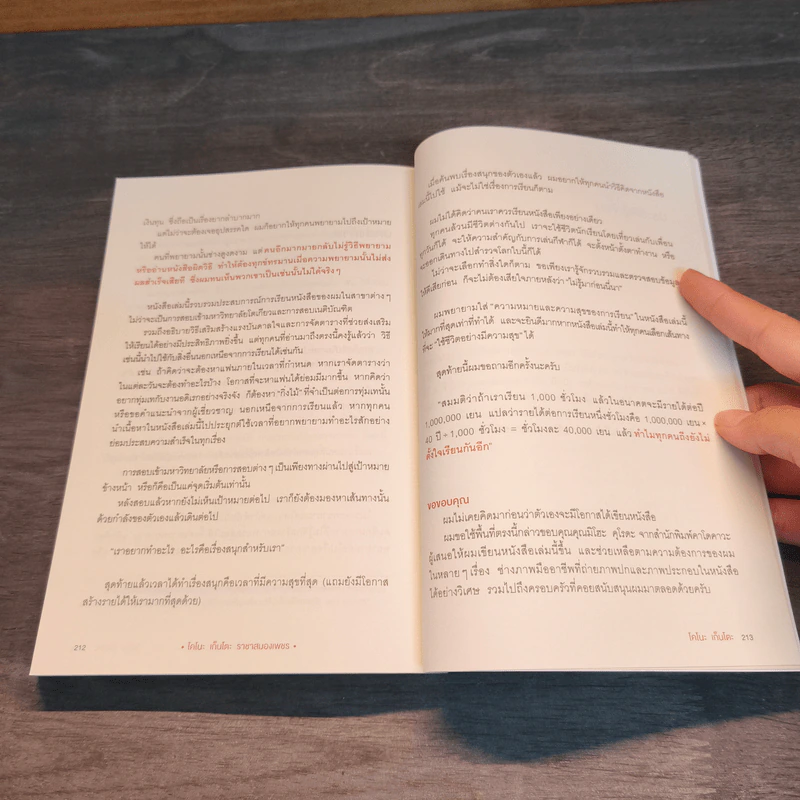 เงินทุน ซึ่งถือเป็นเรื่องยากลำบากมาก
แต่ไม่ว่าจะต้องเจออุปสรรคใด ผมก็อยากให้ทุกคนพยายามไปถึงเป้าหมาย
ให้ได้
คนที่พยายามนั้นช่างสูงงดงาม แต่คนอีกมากมายกลับไม่รู้วิธีพยายาม
หรืออ่านหนังสือผิดวิธี ทำให้ต้องทุกข์ทรมานเมื่อความพยายามนั้นไม่ส่ง
ผลสำเร็จเสียที ซึ่งผมทนเห็นพวกเขาเป็นเช่นนั้นไม่ได้จริงๆ
หนังสือเล่มนี้รวบรวมประสบการณ์การเรียนหนังสือของผมในสาขาต่างๆ
ไม่ว่าจะเป็นการสอบเข้ามหาวิทยาลัยโตเกียวและการสอบเนติบัณฑิต
รวมถึงอธิบายวิธีเสริมสร้างแรงบันดาลใจและการจัดตารางที่ช่วยส่งเสริม
ให้เรียนได้อย่างมีประสิทธิภาพยิ่งขึ้น แต่ทุกคนที่อ่านมาถึงตรงนี้คงรู้แล้วว่า วิธี
เช่นนี้นำไปใช้กับสิ่งอื่นนอกเหนือจากการเรียนได้เช่นกัน
เช่น ถ้าคิดว่าจะต้องหาแฟนภายในเวลาที่กำหนด หากเราจัดตารางว่า
ในแต่ละวันจะต้องทำอะไรบ้าง โอกาสที่จะหาแฟนได้ย่อมมีมากขึ้น หากคิดว่า
อยากทุ่มเทกับงานอดิเรกอย่างจริงจัง ก็ต้องหา "กิ่งไม้" ที่จำเป็นต่อการทุ่มเทนั้น
หรือขอคำแนะนำจากผู้เชี่ยวชาญ นอกเหนือจากการเรียนแล้ว หากทุกคน
นำเนื้อหาในหนังสือเล่มนี้ไปประยุกต์ใช้เวลาที่อยากพยายามทำอะไรสักอย่าง
ย่อมประสบความสำเร็จในทุกเรื่อง
การสอบเข้ามหาวิทยาลัยหรือการสอบต่างๆ เป็นเพียงทางผ่านไปสู่เป้าหมาย
ข้างหน้า หรือก็คือเป็นแค่จุดเริ่มต้นเท่านั้น
หลังสอบแล้วหากยังไม่เห็นเป้าหมายต่อไป เราก็ยังต้องมองหาเส้นทางนั้น
ด้วยกำลังของตัวเองแล้วเดินต่อไป
"เราอยากทำอะไร อะไรคือเรื่องสนุกสำหรับเรา"
สุดท้ายแล้วเวลาได้ทำเรื่องสนุกคือเวลาที่มีความสุขที่สุด (แถมยังมีโอกาส
สร้างรายได้ให้เรามากที่สุดด้วย)
212
• โคโนะ เก็นโตะ ราชาสมองเพชร •
เมื่อค้นพบเรื่องสนุกของตัวเองแล้ว ผมอยากให้ทุกคนนำวิธีคิดจากหนังสือ
เล่มนี้ไปใช้ แม้จะไม่ใช่เรื่องการเรียนก็ตาม
ผมไม่ได้คิดว่าคนเราควรเรียนหนังสือเพียงอย่างเดียว
ทุกคนล้วนมีชีวิตต่างกันไป เราจะใช้ชีวิตนักเรียนโดยเที่ยวเล่นกับเพื่อน
ทุกวันก็ได้ จะให้ความสำคัญกับการเล่นกีฬาก็ได้ จะตั้งหน้าตั้งตาทำงาน หรือ
จะออกเดินทางไปสำรวจโลกใบนี้ก็ได้
ไม่ว่าจะเลือกทำสิ่งใดก็ตาม ขอเพียงเรารู้จักรวบรวมและตรวจสอบข้อมูล
ให้ดีเสียก่อน ก็จะไม่ต้องเสียใจภายหลังว่า "ไม่รู้มาก่อนนี่นา"
ผมพยายามใส่ "ความหมายและความสุขของการเรียน" ในหนังสือเล่มนี้
ให้มากที่สุดเท่าที่ทำได้ และจะยินดีมากหากหนังสือเล่มนี้ทำให้ทุกคนเลือกเส้นทาง
ที่จะ "ใช้ชีวิตอย่างมีความสุข" ได้
สุดท้ายนี้ผมขอถามอีกครั้งนะครับ
"สมมติว่าถ้าเราเรียน 1,000 ชั่วโมง แล้วในอนาคตจะมีรายได้ต่อปี
1,000,000 เยน แปลว่ารายได้ต่อการเรียนหนึ่งชั่วโมงคือ 1,000,000 เยน ×
40 ปี ÷ 1,000 ชั่วโมง = ชั่วโมงละ 40,000 เยน แล้วทำไมทุกคนถึงยังไม่
ตั้งใจเรียนกันอีก"
ขอขอบคุณ
ผมไม่เคยคิดมาก่อนว่าตัวเองจะมีโอกาสได้เขียนหนังสือ
ผมขอใช้พื้นที่ตรงนี้กล่าวขอบคุณคุณมิโฮะ คุโรดะ จากสำนักพิมพ์คาโดคาวะ
ผู้เสนอให้ผมเขียนหนังสือเล่มนี้ขึ้น และช่วยเหลือตามความต้องการของผม
ในหลายๆ เรื่อง ช่างภาพมืออาชีพที่ถ่ายภาพปกและภาพประกอบในหนังสือ
ได้อย่างวิเศษ รวมไปถึงครอบครัวที่คอยสนับสนุนผมมาตลอดด้วยครับ
โคโนะ เก็นโตะ 213